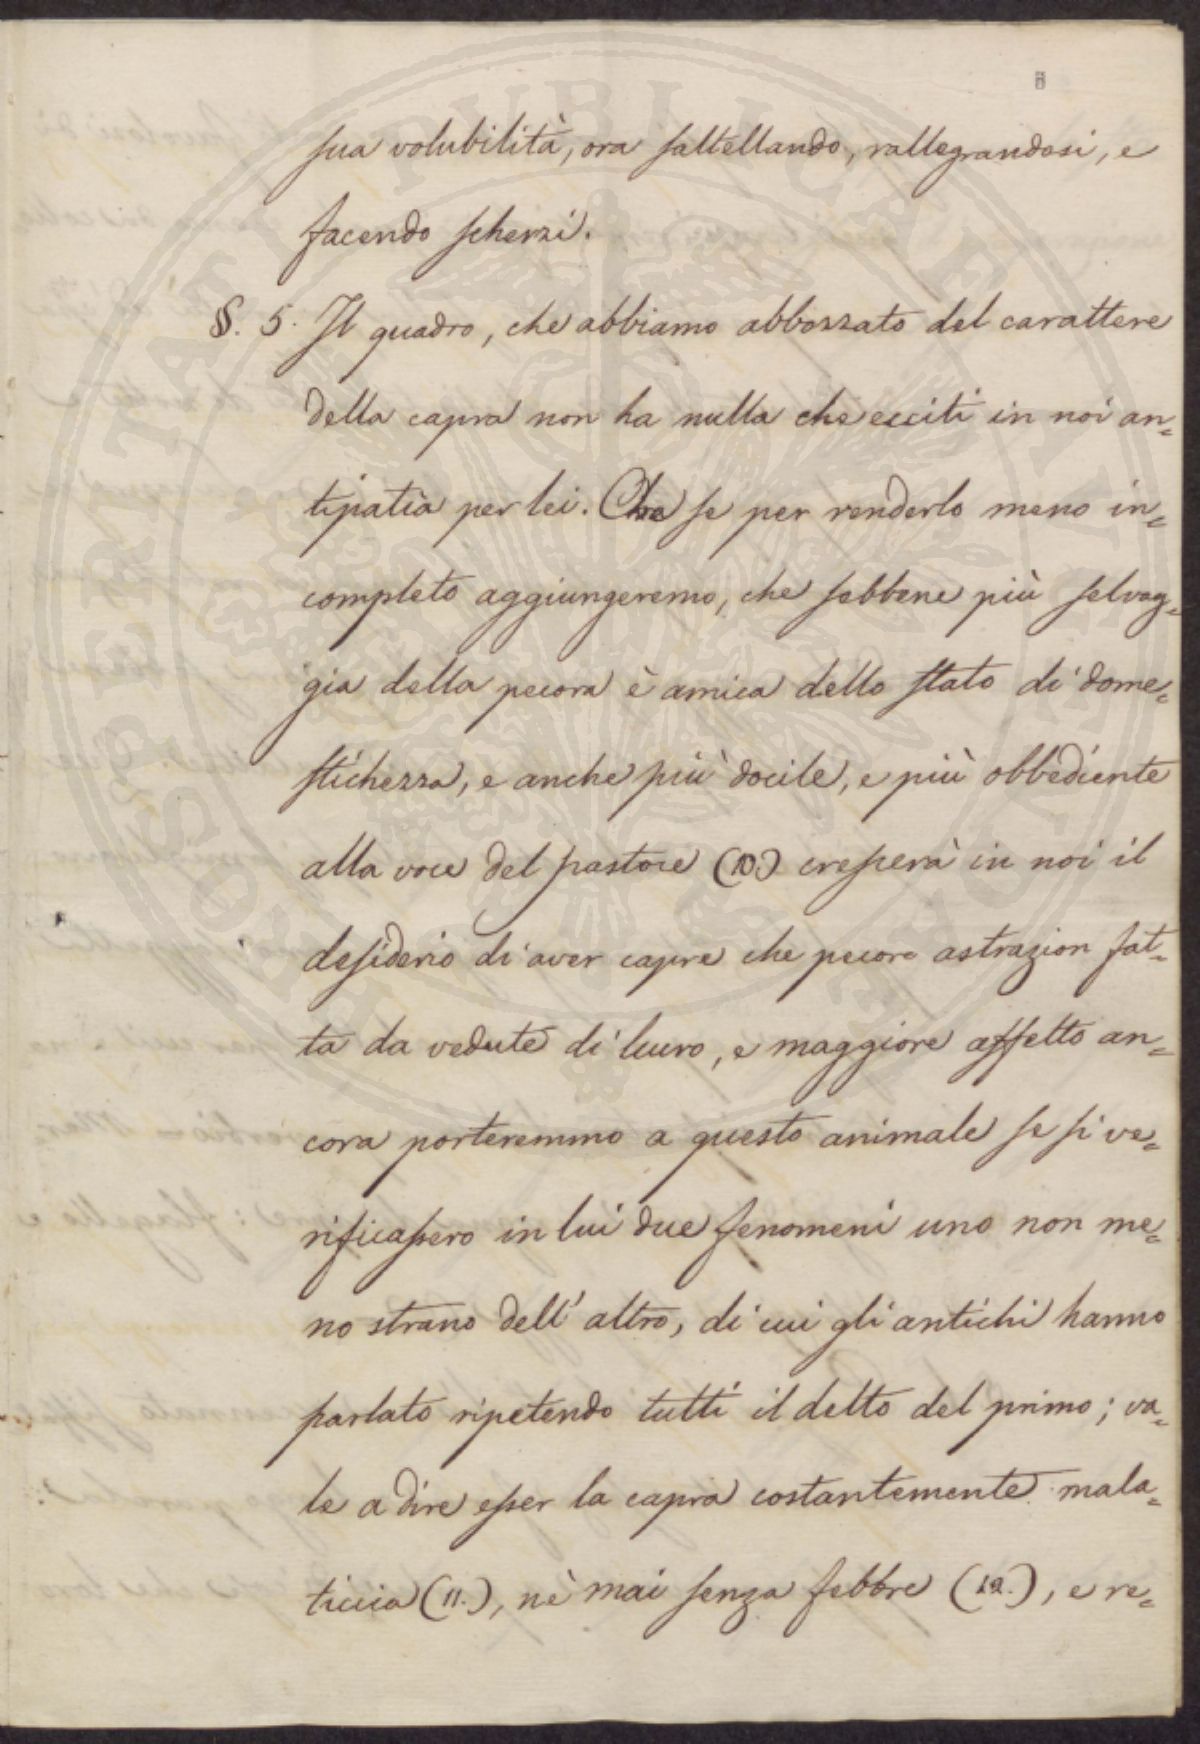 8
sua volubilità, ora saltellando, rallegrandosi, e
facendo scherzi.
§. 5. Il quadro, che abbiamo abbozzato del carattere
della capra non ha nulla che ecciti in noi an=
tipatia per lei. Che se per renderlo meno in=
completo aggiungeremo, che sebbene più selvag=
gia della pecora è amica dello stato di dome=
stichezza, e anche più docile, e più obbediente
alla voce del pastore (10.) crescerà in noi il
desiderio di aver capre che pecore astrazion fat=
ta da vedute di lucro, e maggiore affetto an=
cora porteremmo a questo animale se si ve=
rificassero in lui due fenomeni uno non me=
no strano dell'altro, di cui gli antichi hanno
parlato ripetendo tutti il detto del primo; va=
le a dire esser la capra costantemente mala=
ticcia (11.), nè mai senza febbre (12.), e re=
PROSPERITATI PUBLICAE